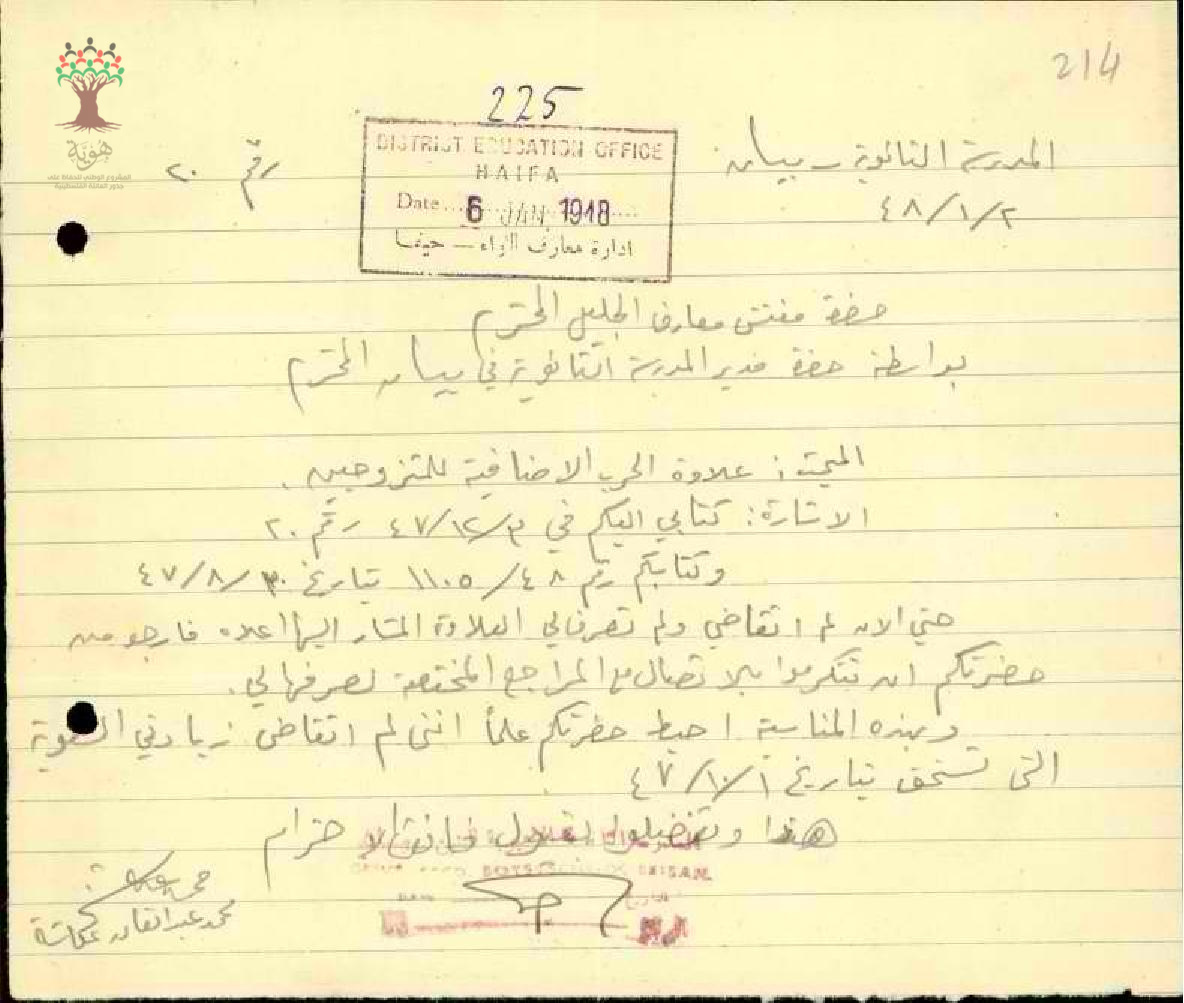 214
225
المدرسة الثانوية - بيسان
رقم ٢٠
٤٨/١/٢
DISTRICT EDUCATION OFFICE
HAIFA
Date 6 JAN 1948
ادارة معارف اللواء — حيفا
هوية
المشروع الوطني للحفاظ على
جذور العائلة الفلسطينية
حضرة مفتش معارف الجليل المحترم
بواسطة حضرة مدير المدرسة الثانوية في بيسان المحترم
المبحث: علاوة الحرب الاضافية للمتزوجين.
الاشارة: كتابي اليكم في ٤٧/١٢/٣ رقم ٢٠
وكتابكم رقم ١١٠٥/٤٨ بتاريخ ٤٧/٨/٣٠
حتى الان لم اتقاضى ولم تصرفالي العلاوة المشار اليها اعلاه فارجو من
حضرتكم ان تتكرموا بالاتصال مع المراجع المختصة لصرفها لي.
وبهذه المناسبة احيط حضرتكم علماً انني لم اتقاضى زيادتي السنوية
التي تستحق بتاريخ ٤٧/١٠/١
هذا وتفضلوا بقبول فائق الاحترام
BOYS SCHOOL BEISAN
محمد عبد القادر عكاشة